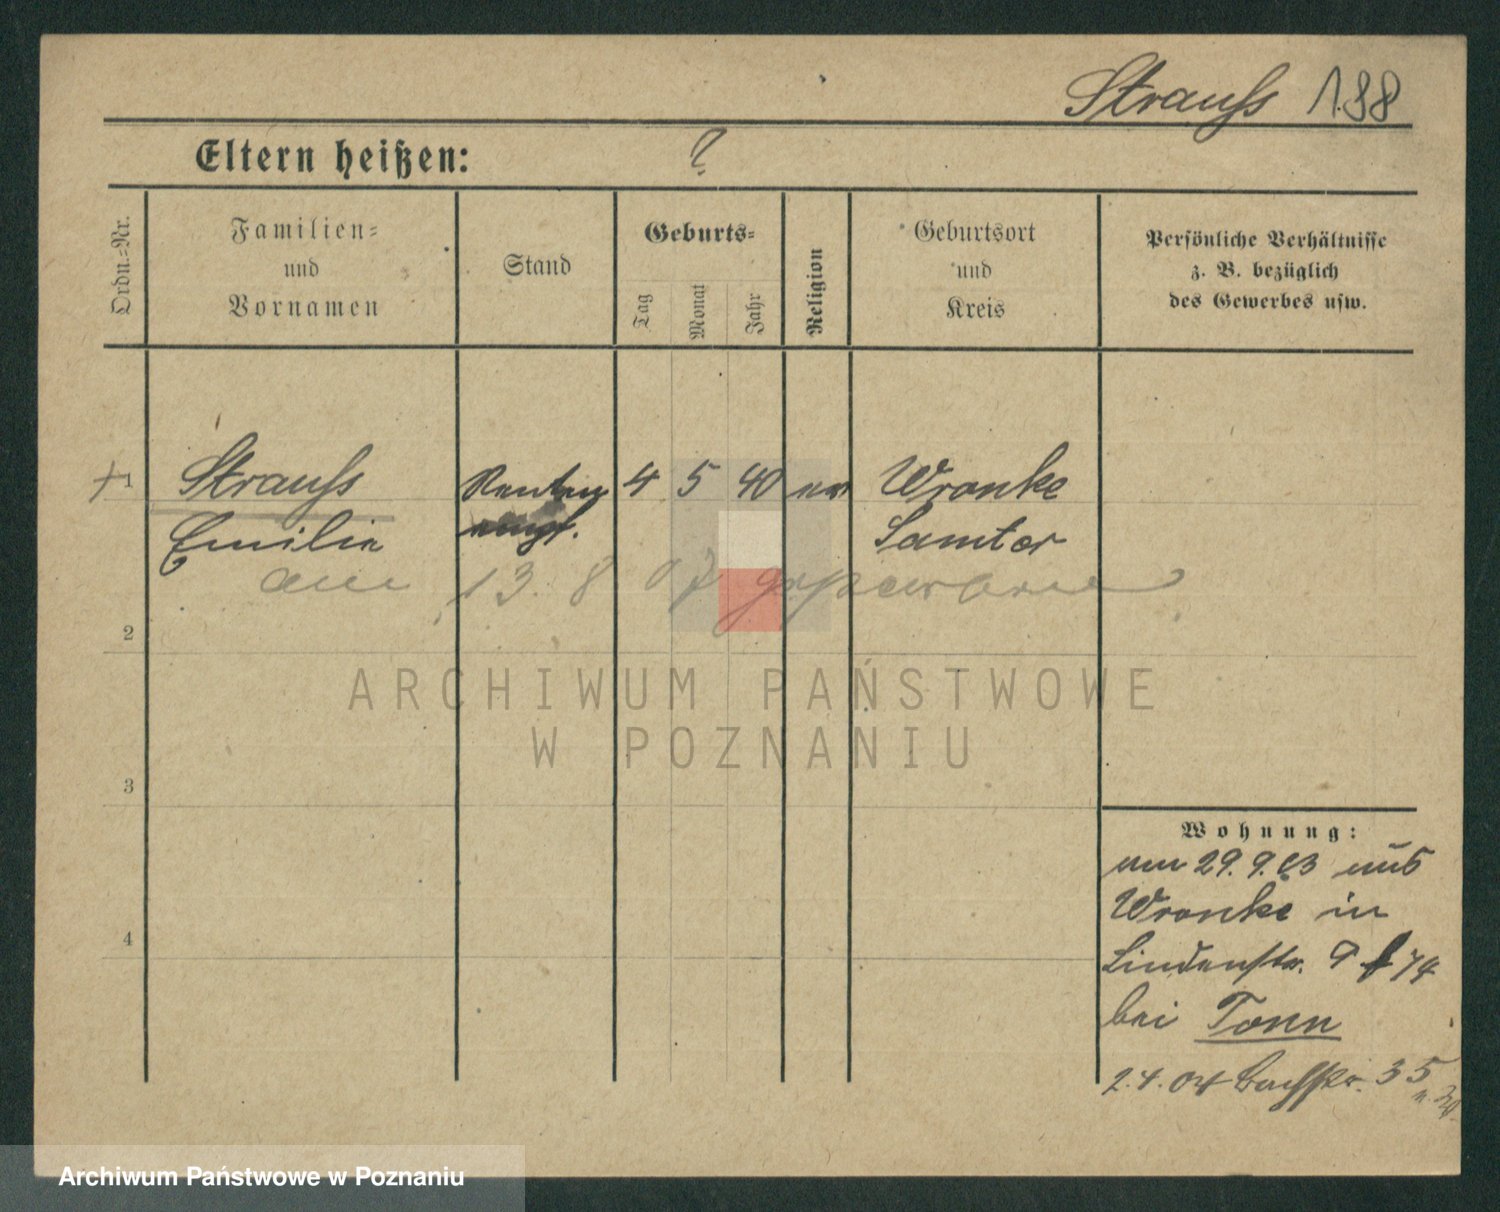 Strauss 188
Eltern heißen: ?
Ordn.-Nr.
Familien-
und
Vornamen
Stand
Geburts-
Tag
Monat
Jahr
Religion
Geburtsort
und
Kreis
Persönliche Verhältnisse
z. B. bezüglich
des Gewerbes usw.
+ 1 Strauss 4 5 40 ev Wronke
Emilie Samter
am 13. 8 07
2
3
4
Wohnung:
am 29. 9. 03 aus
Wronke in
Lindenstr. 9
bei Tonn
2. 4. 04 Bachstr. 35
ARCHIWUM PAŃSTWOWE
W POZNANIU
Archiwum Państwowe w Poznaniu